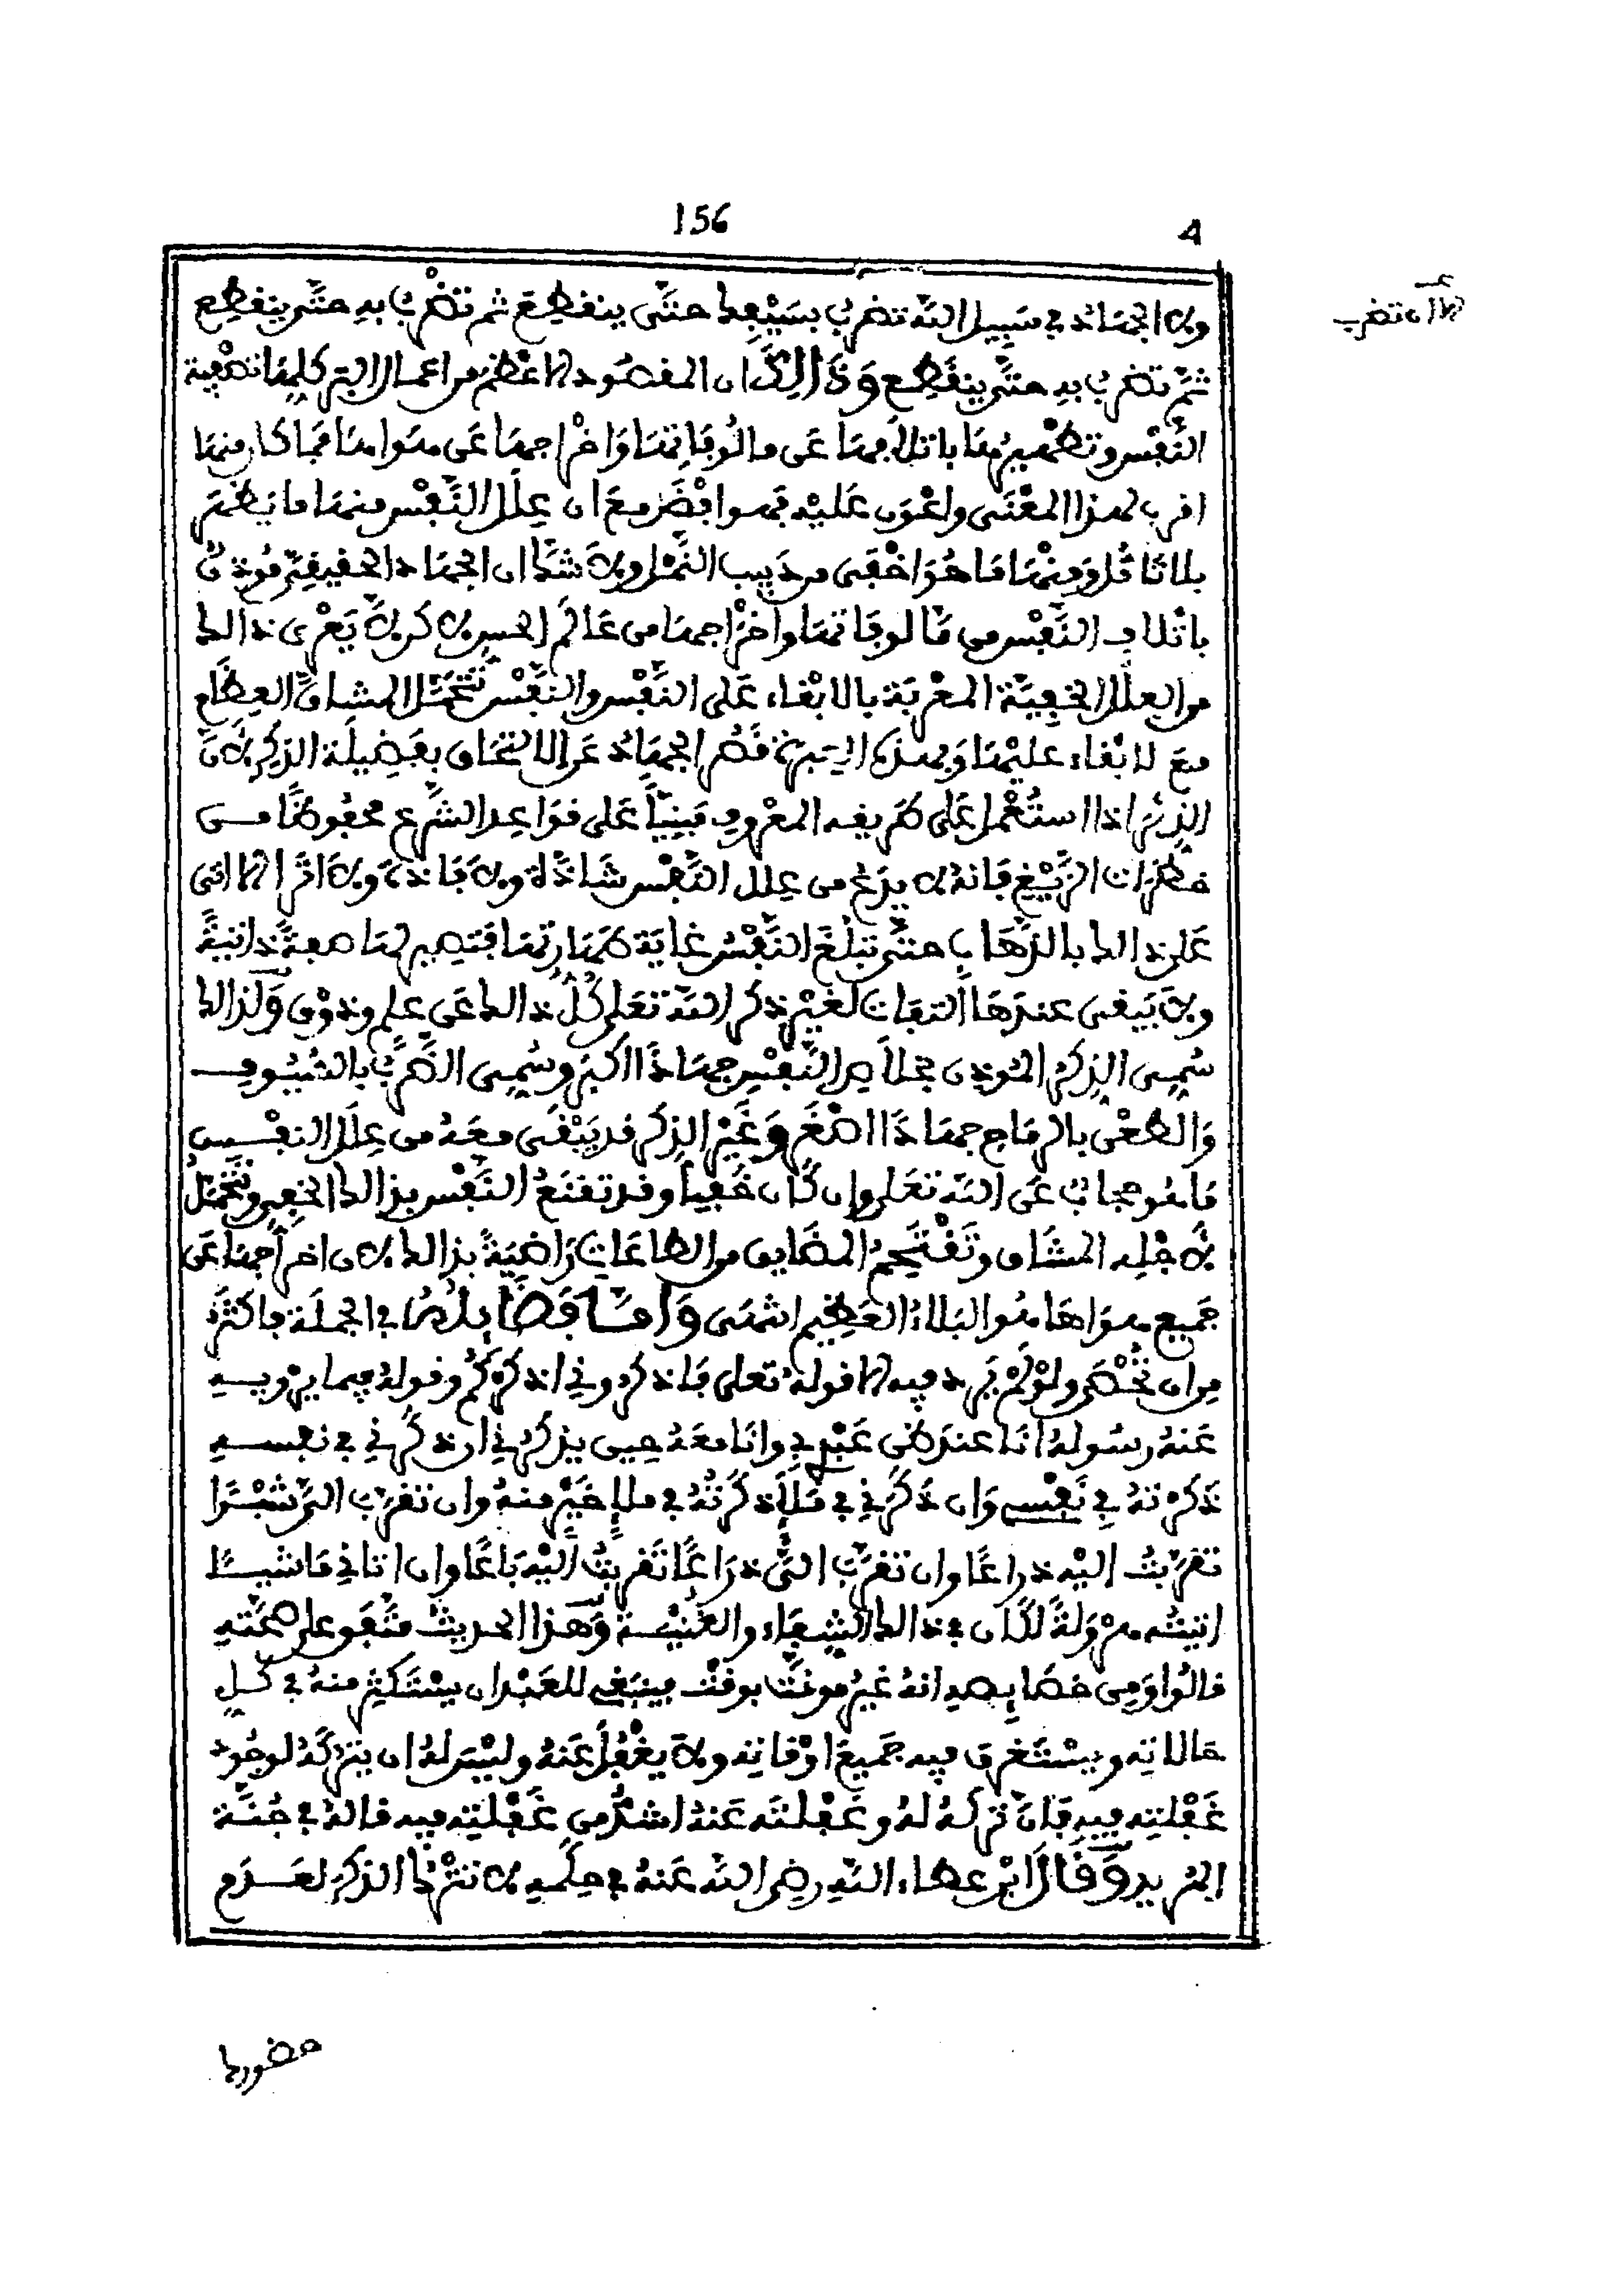 156
4
ولا الجهاد في سبيل الله تضرب بسيفك حتى ينقطع ثم تضرب به حتى ينقطع
الا ان تضرب
ثم تضرب به حتى ينقطع وذالك ان المقصود الاعظم من اعمال البر كلها تصفية
النفس وتطهيرها باتلافها عن مالوفاتها واخراجها عن هواها فما كان منها
اقرب لهذا المعنى واعون عليه فهو افضل مع ان علل النفس منها ما يظهر
بلا تامل ومنها ما هو اخفى من دبيب النمل ولا شك ان الجهاد الحقيقي موذن
باتلاف النفس من مالوفاتها واخراجها من عالم الحس لاكن لا يعرى ذالك
من العلل الخفية المغربة بالابقاء على النفس والنفس تتحمل المشاق العظام
مع الابقاء عليها وبهذا الاعتبار قصر الجهاد عن الالتحاق بفضيلة الذكر لان
الذكر اذا استعمل على طريقه المعروف مبنيا على قواعد الشرع محفوظا من
خطرات الزيغ فانه لا يدع من علل النفس شاذة ولا فاذة ولا اثرا الا اتى
على ذالك بالذهاب حتى تبلغ النفس غاية طهارتها فتصير لها صفة ذاتية
ولا يبقى عندها التفات لغير ذكر الله تعلى كل ذالك عن علم وذوق ولذالك
سمي الذكر الموذن بخلاص النفس جهادا اكبر وسمي الضرب بالسيوف
والطعن بالرماح جهادا اصغر وغير الذكر قد يبقى معه من علل النفس
ما هو حجاب عن الله تعلى وان كان خفيا وقد تقنع النفس بذالك الخفي وتتحمل
لاجله المشاق وتقتحم المضايق من الطاعات راضية بذالك لان اخراجها عن
جميع هواها هو البلاء العظيم انتهى واما فضايله في الجملة فاكثر
من ان تحصى ولو لم يرد فيه الا قوله تعلى فاذكروني اذكركم وقوله فيما يرويه
عنه رسوله انا عند ظن عبدي وانا معه حين يذكرني ان ذكرني في نفسه
ذكرته في نفسي وان ذكرني في ملإ ذكرته في ملإ خير منه وان تقرب الي شبرا
تقربت اليه ذراعا وان تقرب الي ذراعا تقربت اليه باعا وان اتاني ماشيا
اتيته هرولة لكان في ذالك الشفاء والغنية وهذا الحديث متفق على صحته
قالوا ومن خصايصه انه غير موقت بوقت فينبغي للعبد ان يستكثر منه في كل
حالاته ويستغرق فيه جميع اوقاته ولا يغفل عنه وليس له ان يتركه لوجود
غفلته فيه فان تركه له وغفلته عنه اشد من غفلته فيه قاله في جنة
المريد وقال ابن عطاء الله رضي الله عنه في حكمه لا تترك الذكر لعدم
حضورك